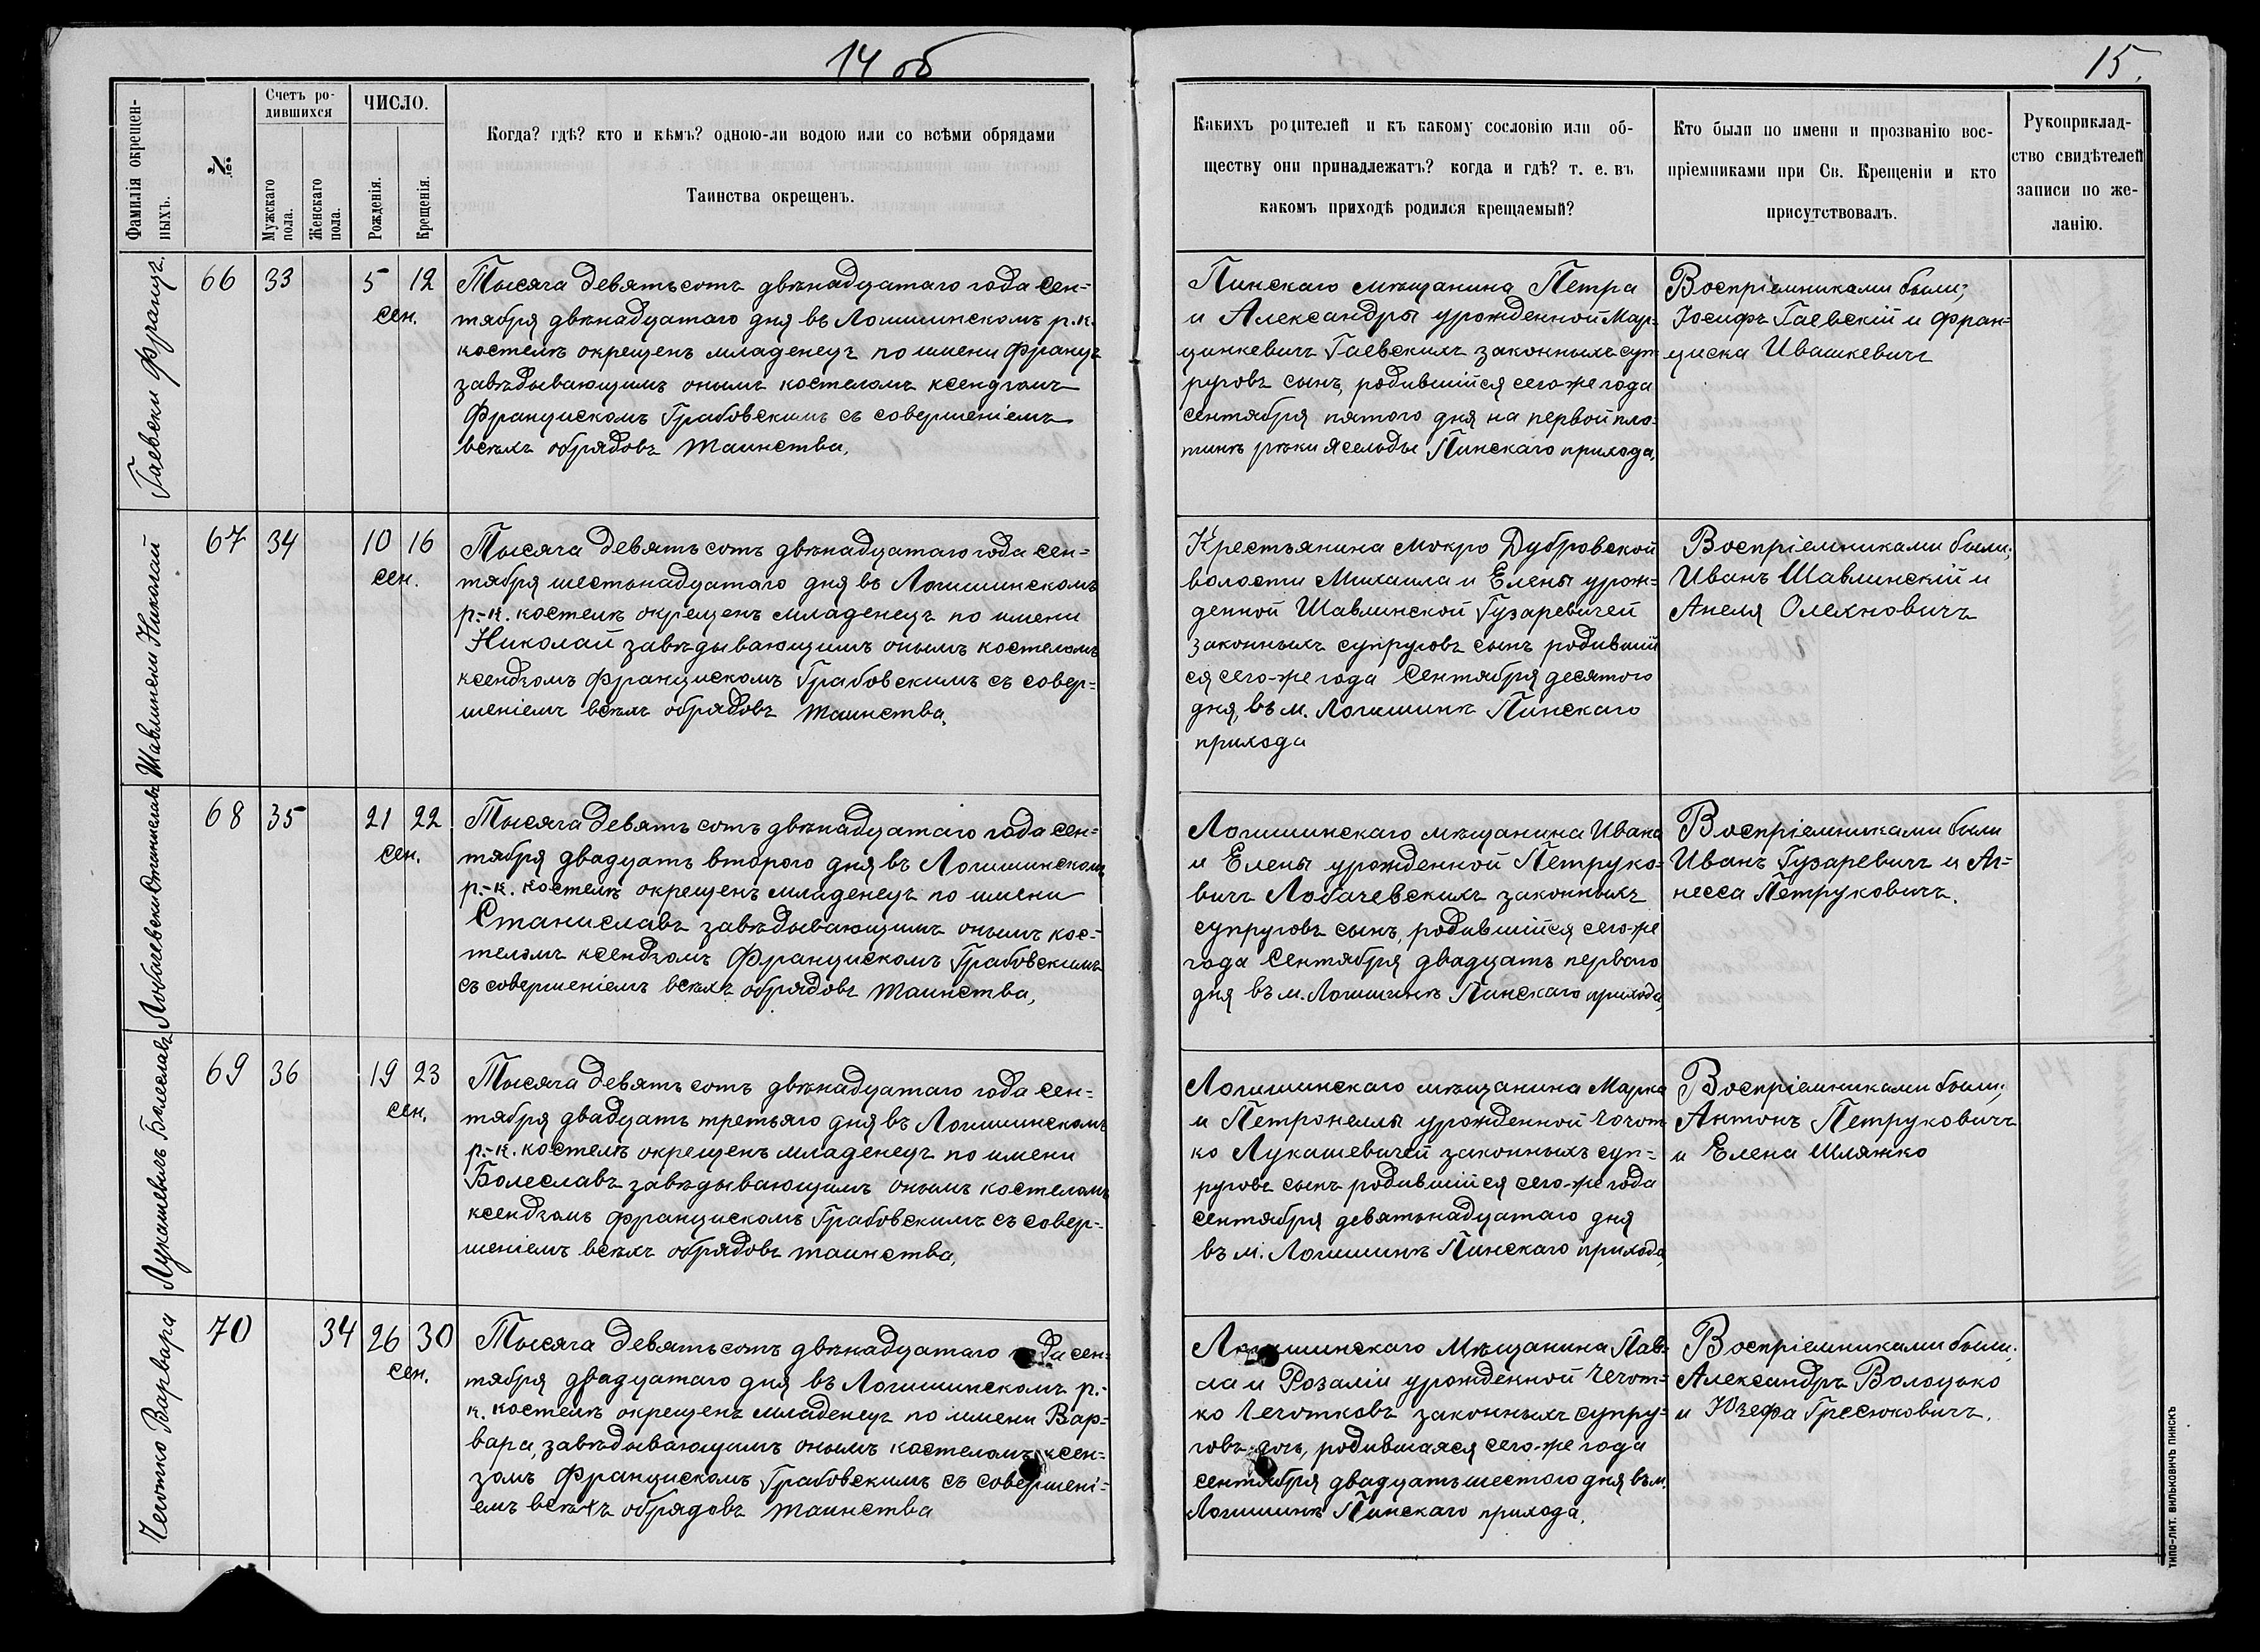 14 об
15.
Фамилія окрещен-
ныхъ.
№
Счетъ ро-
дившихся
Мужскаго
пола.
Женскаго
пола.
ЧИСЛО.
Рожденія.
Крещенія.
Когда? гдѣ? кто и кѣмъ? одною-ли водою или со всѣми обрядами
Таинства окрещенъ.
Какихъ родителей и къ какому сословію или об-
ществу они принадлежатъ? когда и гдѣ? т. е. въ
какомъ приходѣ родился крещаемый?
Кто были по имени и прозванію вос-
пріемниками при Св. Крещеніи и кто
присутствовалъ.
Рукоприклад-
ство свидѣтелей
записи по же-
ланію.
Гаевски Францъ.
66 33 5 12
сен.
Тысяча девятьсотъ двѣнадцатаго года сен=
тября двѣнадцатаго дня въ Логишинскомъ р.-к.
костелѣ окрещенъ младенецъ по имени Францъ
завѣдывающимъ онымъ костеломъ ксендзомъ
Францискомъ Грабовскимъ съ совершеніемъ
всѣхъ обрядовъ таинства.
Пинскаго мѣщанина Петра
и Александры урожденной Мар=
цинкевичъ Гаевскихъ законныхъ суп=
руговъ сынъ, родившійся сего-же года
сентября пятого дня на первой пло=
тинѣ рѣки Ясельды Пинскаго прихода.
Воспріемниками были;
Іосифъ Гаевскій и Фран=
циска Ивашкевичъ
Шавлински Николай
67 34 10 16
сен.
Тысяча девятьсотъ двѣнадцатаго года сен=
тября шестьнадцатаго дня въ Логишинскомъ
р.-к. костелѣ окрещенъ младенецъ по имени
Николай завѣдывающимъ онымъ костеломъ
ксендзомъ Францискомъ Грабовскимъ съ совер=
шеніемъ всѣхъ обрядовъ таинства.
Крестьянина Мокро Дубровской
волости Михаила и Елены урож=
денной Шавлинской Гузаревичей
законныхъ супруговъ сынъ родившій
ся сего-же года Сентября десятого
дня, въ м. Логишинѣ Пинскаго
прихода
Воспріемниками были;
Иванъ Шавлинскій и
Анеля Олехновичъ
Лобачевски Станиславъ
68 35 21 22
сен.
Тысяча девятьсотъ двѣнадцатаго года сен=
тября двадцать второго дня въ Логишинскомъ
р.-к. костелѣ окрещенъ младенецъ по имени
Станиславъ завѣдывающимъ онымъ кос=
теломъ ксендзомъ Францискомъ Грабовскимъ
съ совершеніемъ всѣхъ обрядовъ таинства,
Логишинскаго мѣщанина Ивана
и Елены урожденной Петруко=
вичъ Лобачевскихъ законныхъ
супруговъ сынъ, родившійся сего-же
года Сентября двадцать первого
дня въ м. Логишинѣ Пинскаго прихода,
Воспріемниками были
Иванъ Гузаревичъ и Аг=
несса Петруковичъ.
Лукашевичъ Болеславъ
69 36 19 23
сен.
Тысяча девятьсотъ двѣнадцатаго года сен=
тября двадцать третьяго дня въ Логишинскомъ
р.-к. костелѣ окрещенъ младенецъ по имени
Болеславъ завѣдывающимъ онымъ костеломъ
ксендзомъ Францискомъ Грабовскимъ съ совер=
шеніемъ всѣхъ обрядовъ таинства,
Логишинскаго мѣщанина Марка
и Петронеллы урожденной Чечот
ко Лукашевичей законныхъ суп=
руговъ сынъ родившійся сего-же года
сентября девятьнадцатаго дня
въ м. Логишинѣ Пинскаго прихода,
Воспріемниками были;
Антонъ Петруковичъ
и Елена Шляжко
Чечотко Варвара
70 34 26 30
сен.
Тысяча девятьсотъ двѣнадцатаго года сен=
тября двадцатаго дня въ Логишинскомъ р.-
к. костелѣ окрещенъ младенецъ по имени Вар=
вара, завѣдывающимъ онымъ костеломъ ксен=
зомъ Францискомъ Грабовскимъ съ совершені=
емъ всѣхъ обрядовъ таинства
Логишинскаго Мѣщанина Пав=
ла и Розаліи урожденной Чечот=
ко Чечотковъ законныхъ супру=
говъ дочь, родившаяся сего-же года
сентября двадцать шестого дня въ м.
Логишинѣ Пинскаго прихода.
Воспріемниками были;
Александръ Волоцько
и Юзефа Гресюковичъ.
ТИПО-ЛИТ. ВИЛЬКОВИЧЪ ПИНСКЪ